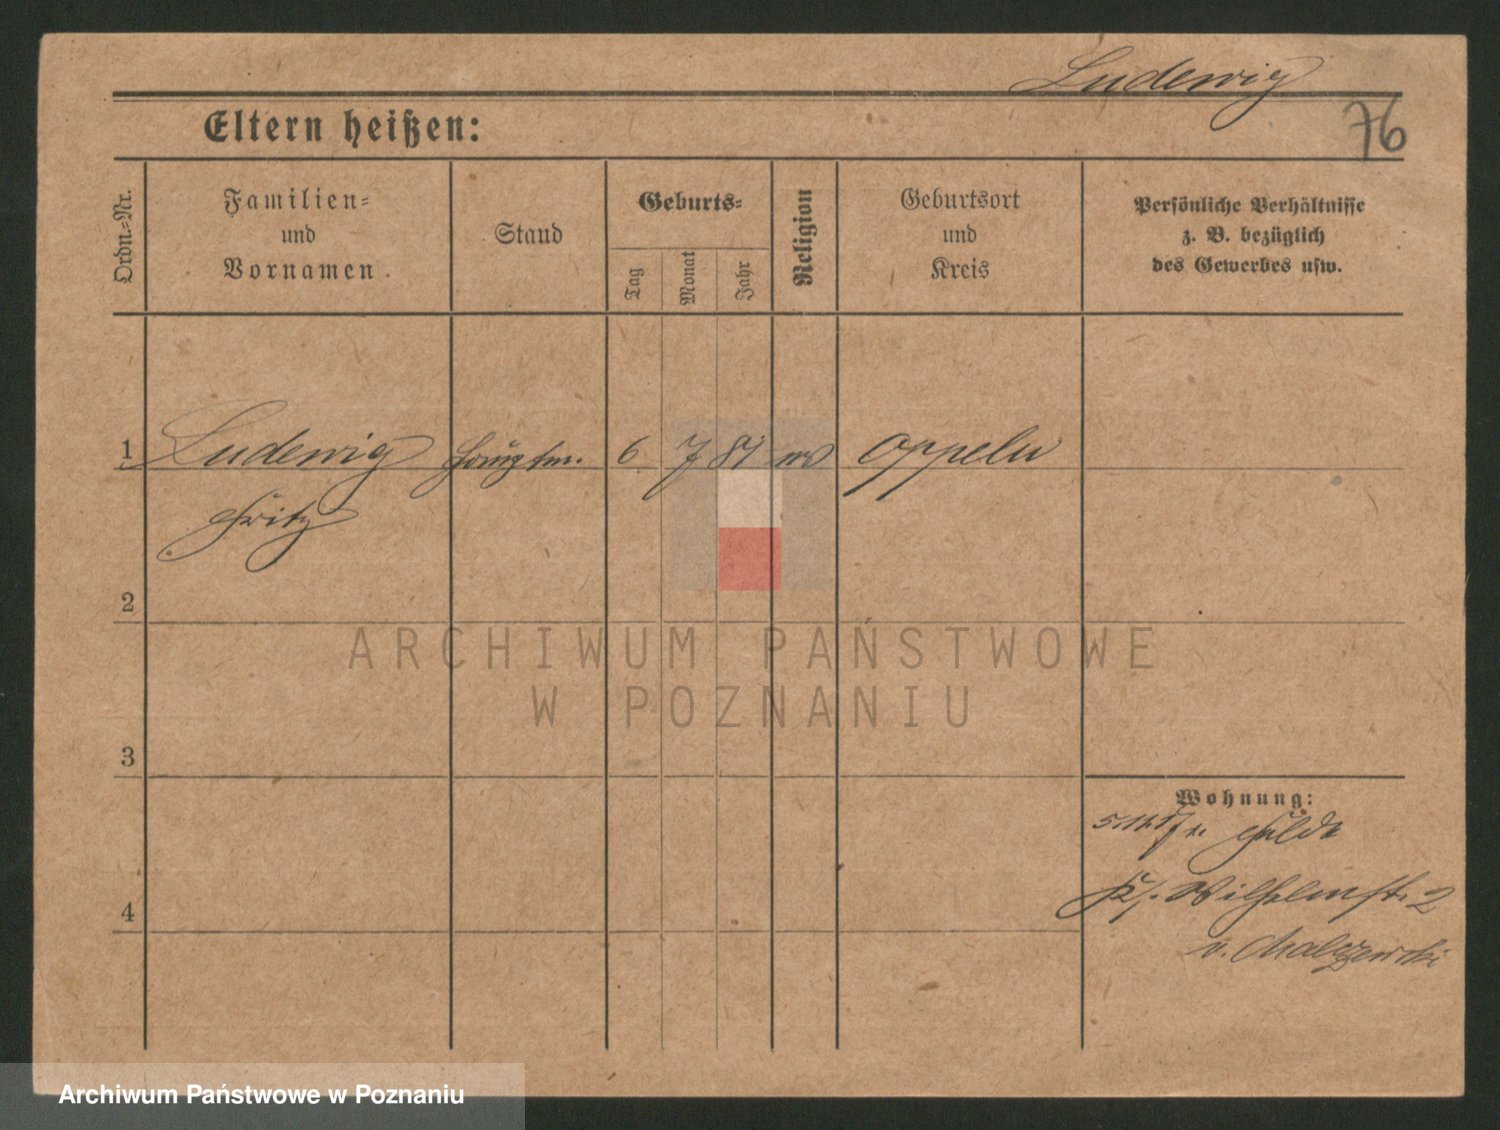 Ludewig
76
Eltern heißen:
Ordn.-Nr.
Familien-
und
Vornamen.
Stand
Geburts-
Tag
Monat
Jahr
Religion
Geburtsort
und
Kreis
Persönliche Verhältnisse
z. B. bezüglich
des Gewerbes usw.
1 Ludewig Hauptm. 6 7 81 Oppeln
Fritz
2
ARCHIWUM PAŃSTWOWE
W POZNANIU
3
Wohnung:
Fulda
Wilhelmstr. 2
v. Malczewski
4
Archiwum Państwowe w Poznaniu